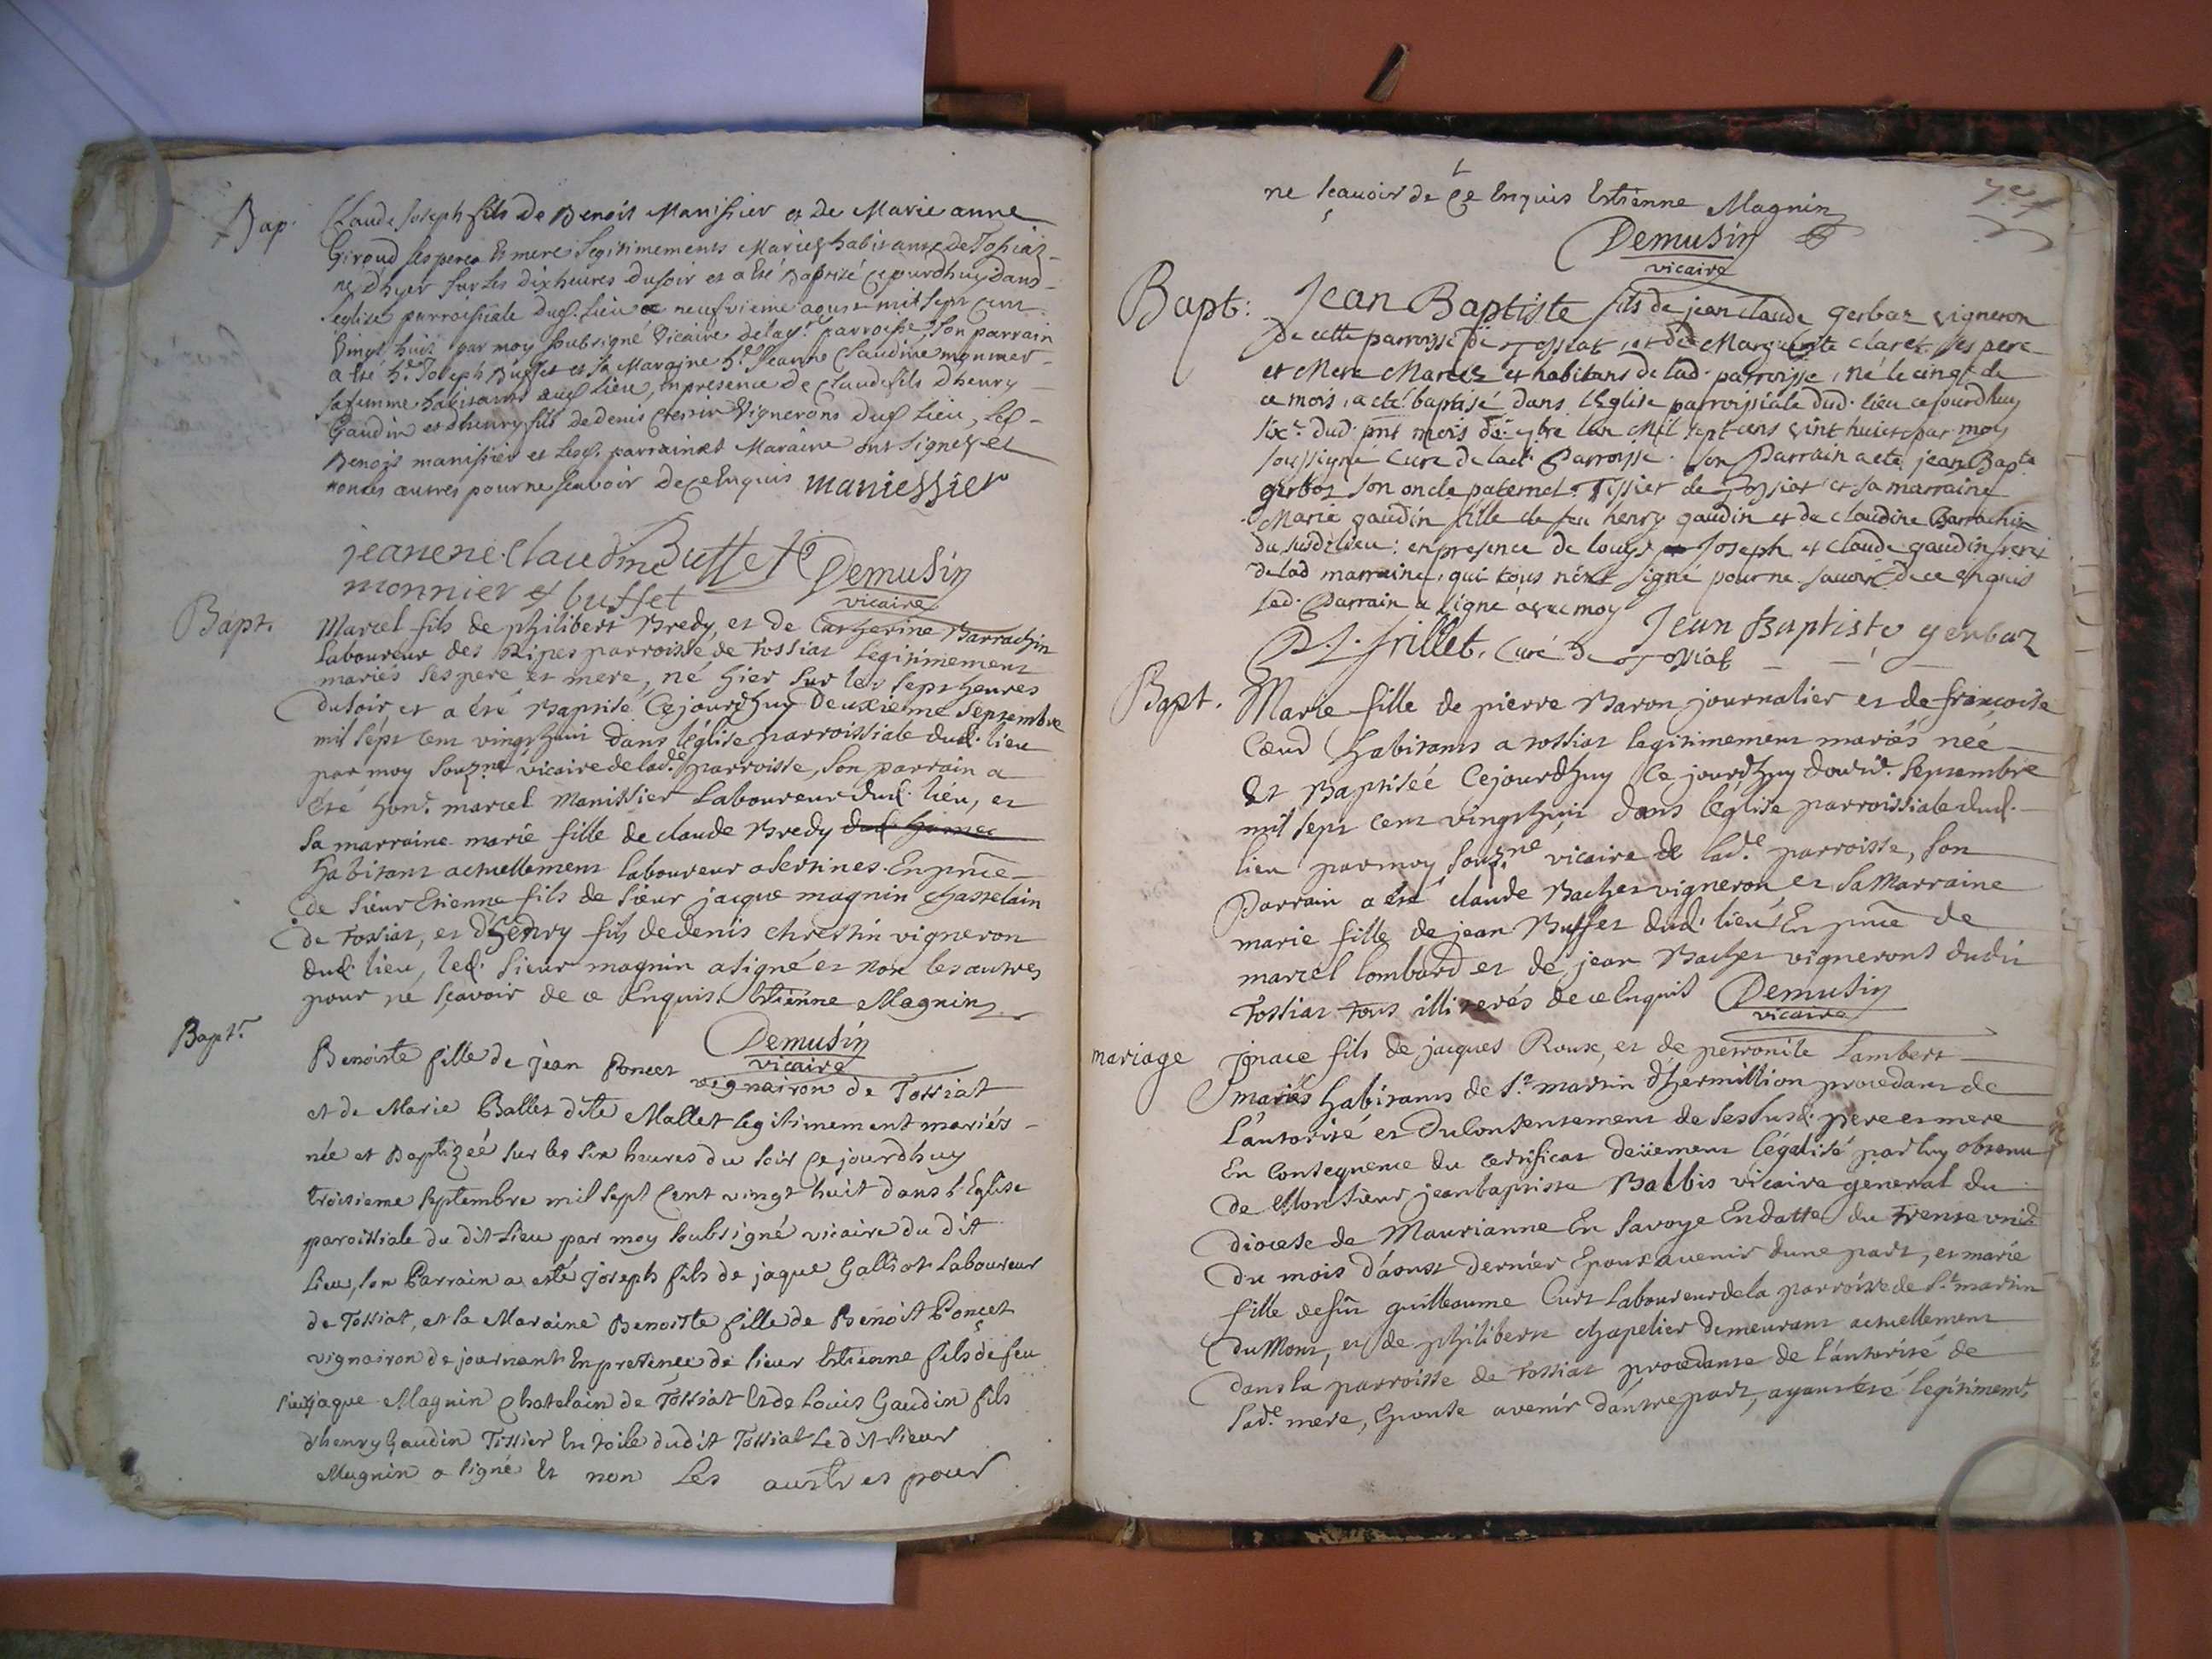 Bap.
Claude Joseph fils de Benoit Manissier et de Marie anne
Giroud ses pere et mere legitimements Mariés habitants de Tossiaz
né d'hyer sur les dix heures du soir et a été Baptisé cejourdhuy dans
l'eglise parroissiale dud. lieu ce neufvieme aoust mil sept cent
vingt huit par moy soubsigné vicaire de lad. parroisse son parrain
a été h.e Joseph Buffet et sa Maraine h.e Jeanne Claudine monnier
sa femme habitants dud lieu, en presence de Claude fils dhenry
Gaudin et dhenry fils de denis Chrestin Vignerons dud lieu, led
Benoit manissier et lesd. parrain et Maraine ont signés et
non les autres pour ne scavoir de ce Enquis maniessier
jeanene Claudine Buffet
monnier buffet
Demusin
vicaire
Bapt.
Marcel fils de philibert Bredy, et de Catherine Barrachin
laboureur des Ripes parroisse de Tossiat legitimement
mariés ses pere et mere, né hier sur les sept heures
du soir et a été Baptisé Cejourdhuy deuxieme Septembre
mil sept cent vingt huit dans l'église parroissiale dud. lieu
par moy souz.né vicaire de lad.e parroisse, son parrain a
été hon.e marcel Manissier laboureur dud. lieu, et
sa marraine marie fille de claude Bredy
habitant actuellement laboureur a Sertines. En prñce
de sieur Etienne fils de sieur jacque magnin chastelain
de Tossiat, et d'henry fils de denis chrestin vigneron
dud. lieu, led. sieur magnin a signé et non les autres
pour ne sçavoir de ce Enquis. Estienne Magnin
Demusin
vicaire
Bapt.
Benoiste fille de jean Poncet vignairon de Tossiat
et de Marie Ballet dite Mallet legitimement mariés
née et Baptizeé sur les six heures du soir Cejourdhuy
troisieme Septembre mil sept Cent vingt huit dans l'Eglise
paroissiale du dit Lieu par moy soubsigné vicaire du dit
Lieu, son Parrain a esté joseph fils de jaque Galliot Laboureur
de Tossiat, et la Maraine Benoiste fille de Benoit Poncet
vignairon de journant En presence de sieur Estienne fils de feu
sieur jaque Magnin Chatelain de Tossiat Et de Louis Gaudin fils
d'henry Gaudin Tissier En toile dudit Tossiat Le dit sieur
Magnin a signé Et non Les austres pour
ne sçauoir de Ce Enquis Estienne Magnin
Demusin
vicaire
Bapt:
Jean Baptiste fils de jean claude gerbaz vigneron
de cette parroisse de Tossiat et de Marguerite claret ses pere
et Mere Mariez et habitans de lad. parroisse, né le cinq.e de
ce mois, a eté baptisé dans l'Eglise parroissiale dud. lieu cejourdhuy
six.e dud. pnt mois de 7bre l'an Mil sept cens vint huict par moy
soussigné Curé de lad. Parroisse. Son Parrain a eté jean Bap.te
gerbaz son oncle paternel Tissier de Tossiat et sa marraine
Marie gaudin fille de feu henry gaudin et de claudine Barrachin
du susd. lieu: en presence de louys Joseph et claude gaudin freres
de lad marraine, qui tous n'ont signé pour ne scavoir de ce enquis
led. Parrain a signé avec moy
Jean Baptiste gerbaz
P. J. frillet, Curé de Tossiat
Bapt.
Marie fille de pierre Baron journalier et de françoise
Cœud habitants a tossiat legitimement mariés neé
Et Baptiseé Cejourdhuy Ce jourdhuy Septembre
mil sept cent vingt huit dans l'église parroissiale dud.
lieu par moy souz.né vicaire de lad.e parroisse, son
Parrain a été claude Bachet vigneron et sa Marraine
marie fille de jean Buffet dud. lieu En prñce de
marcel lombard et de jean Bachet vignerons dudit
Tossiat tous illiterés de ce Enquis Demusin
vicaire
mariage
ignace fils de jacques Roux, et de peronile Lambert
mariés habitants de S.t martin d'hermillion procedant de
l'autorité et du Consentement de ses susd. pere et mere
En Consequence du certificat deüement légalisé par luy obtenu
de Monsieur jean baptiste Balbis vicaire general du
diocese de Maurianne En Savoye En datte du trente unie
du mois d'aoust dernier Epoux avenir d'une part, et marie
fille de fût guilleaume Curt Laboureur de la parroisse de S.t martin
du Mont, et de philiberte chapelier demeurant actuellement
dans la parroisse de Tossiat procedante de l'autorité de
sad.e mere, Epouse avenir d'autre part, ayant été legitimem.t